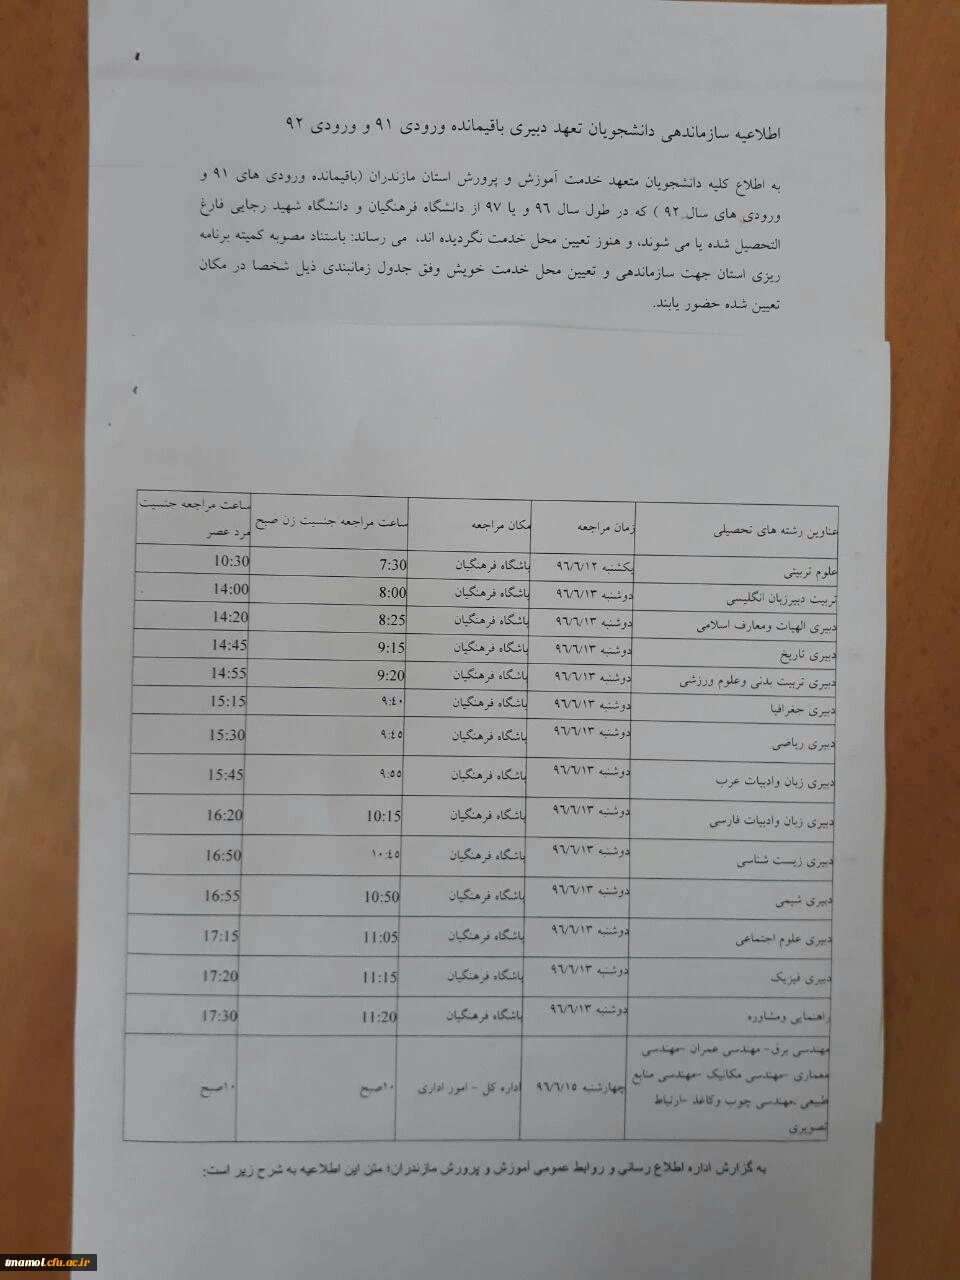 اطلاعیه سازماندهی دانشجویان تعهد دبیری باقیمانده ورودی ۹۱ و ورودی ۹۲
به اطلاع کلیه دانشجویان متعهد خدمت آموزش و پرورش استان مازندران (باقیمانده ورودی های ۹۱ و
ورودی های سال ۹۲ ) که در طول سال ۹۶ و یا ۹۷ از دانشگاه فرهنگیان و دانشگاه شهید رجایی فارغ
التحصیل شده یا می شوند، و هنوز تعیین محل خدمت نگردیده اند، می رساند: باستناد مصوبه کمیته برنامه
ریزی استان جهت سازماندهی و تعیین محل خدمت خویش وفق جدول زمانبندی ذیل شخصا در مکان
تعیین شده حضور یابند.
عناوین رشته های تحصیلی زمان مراجعه مکان مراجعه ساعت مراجعه جنسیت زن صبح ساعت مراجعه جنسیت
مرد عصر
علوم تربیتی یکشنبه ۹۶/۶/۱۲ باشگاه فرهنگیان 7:30 10:30
تربیت دبیرزبان انگلیسی دوشنبه ۹۶/۶/۱۳ باشگاه فرهنگیان 8:00 14:00
دبیری الهیات ومعارف اسلامی دوشنبه ۹۶/۶/۱۳ باشگاه فرهنگیان 8:25 14:20
دبیری تاریخ دوشنبه ۹۶/۶/۱۳ باشگاه فرهنگیان 9:15 14:45
دبیری تربیت بدنی وعلوم ورزشی دوشنبه ۹۶/۶/۱۳ باشگاه فرهنگیان 9:20 14:55
دبیری جغرافیا دوشنبه ۹۶/۶/۱۳ باشگاه فرهنگیان ۹:٤۰ 15:15
دبیری ریاضی دوشنبه ۹۶/۶/۱۳ باشگاه فرهنگیان ۹:٤٥ 15:30
دبیری زبان وادبیات عرب دوشنبه ۹۶/۶/۱۳ باشگاه فرهنگیان ۹:٥٥ 15:45
دبیری زبان وادبیات فارسی دوشنبه ۹۶/۶/۱۳ باشگاه فرهنگیان 10:15 16:20
دبیری زیست شناسی دوشنبه ۹۶/۶/۱۳ باشگاه فرهنگیان ۱۰:٤٥ 16:50
دبیری شیمی دوشنبه ۹۶/۶/۱۳ باشگاه فرهنگیان 10:50 16:55
دبیری علوم اجتماعی دوشنبه ۹۶/۶/۱۳ باشگاه فرهنگیان 11:05 17:15
دبیری فیزیک دوشنبه ۹۶/۶/۱۳ باشگاه فرهنگیان 11:15 17:20
راهنمایی ومشاوره دوشنبه ۹۶/۶/۱۳ باشگاه فرهنگیان 11:20 17:30
مهندسی برق- مهندسی عمران -مهندسی
معماری -مهندسی مکانیک -مهندسی منابع
طبیعی .مهندسی چوب وکاغذ -ارتباط
تصویری
چهارشنبه ۹۶/۶/۱٥ اداره کل - امور اداری ۱۰صبح ۱۰صبح
به گزارش اداره اطلاع رسانی و روابط عمومی آموزش و پرورش مازندران؛ متن این اطلاعیه به شرح زیر است:
tmamol.cfu.ac.ir